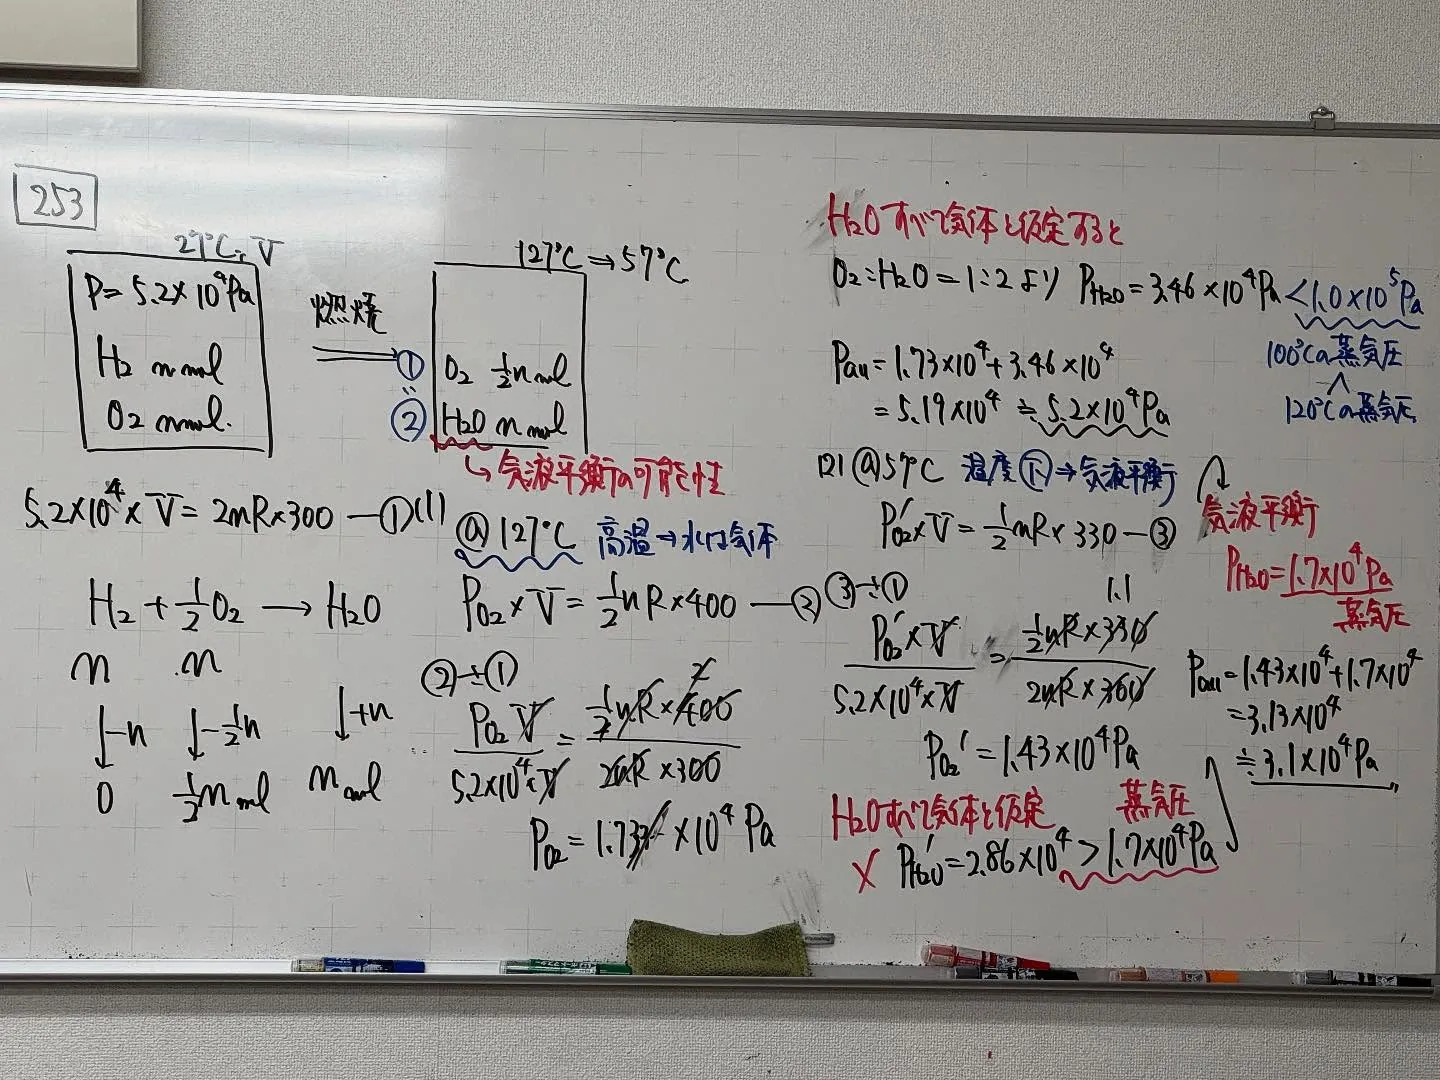 253
27℃, V
P= 5.2×10⁴Pa
H₂ n mol
O₂ n mol.
燃焼
127℃ ⇒ 57℃
① O₂ ½n mol
② H₂O n mol
↳ 気液平衡の可能性
5.2×10⁴×V = 2nR×300 —① (1)
H₂ + ½O₂ → H₂O
n n
↓-n ↓-½n ↓+n
0 ½n mol n mol
@127℃ 高温→水は気体
P_O₂×V = ½nR×400 —②
②÷①
P_O₂ V / 5.2×10⁴×V = ½nR×400 / 2nR×300
2
P_O₂ = 1.73 ×10⁴ Pa
H₂Oすべて気体と仮定すると
O₂:H₂O = 1:2より P_H₂O = 3.46×10⁴Pa < 1.0×10⁵Pa
100℃の蒸気圧
∧
120℃の蒸気圧
Pall = 1.73×10⁴+3.46×10⁴
= 5.19×10⁴ ≒ 5.2×10⁴Pa
(2) @57℃ 温度①→気液平衡
P_O₂'×V = ½nR×330 —③
③÷①
1.1
P_O₂'×V / 5.2×10⁴×V = ½nR×330 / 2nR×300
P_O₂' = 1.43×10⁴Pa
H₂Oすべて気体と仮定 蒸気圧
× P_H₂O' = 2.86×10⁴ > 1.7×10⁴Pa
気液平衡
P_H₂O = 1.7×10⁴Pa
蒸気圧
Pall = 1.43×10⁴+1.7×10⁴
= 3.13×10⁴
≒ 3.1×10⁴Pa